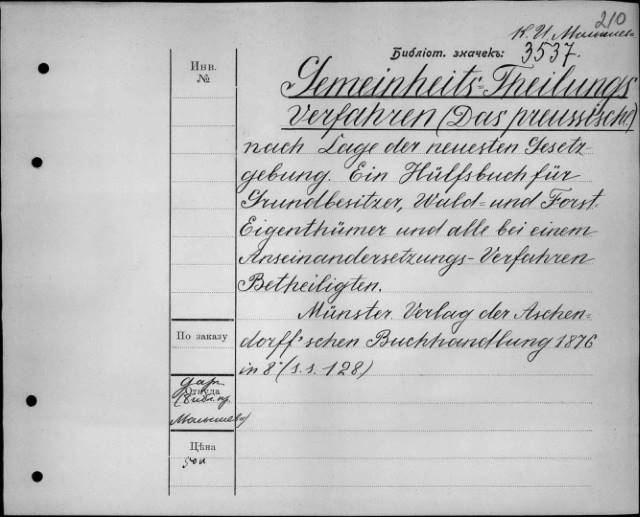 210
К. И. Малышев
Библіот. значекъ: 3537.
Инв.
№
Gemeinheits=Theilungs
Verfahren (Das preussische)
nach Lage der neuesten Gesetz
gebung. Ein Hülfsbuch für
Grundbesitzer, Wald= und Forst
Eigenthümer und alle bei einem
Anseinandersetzungs-Verfahren
Betheiligten.
Münster. Verlag der Aschen-
dorff'schen Buchhandlung 1876
in 8° (s.s. 128)
По заказу
дар.
Откуда
(библ. пр.
Малышева)
Цѣна